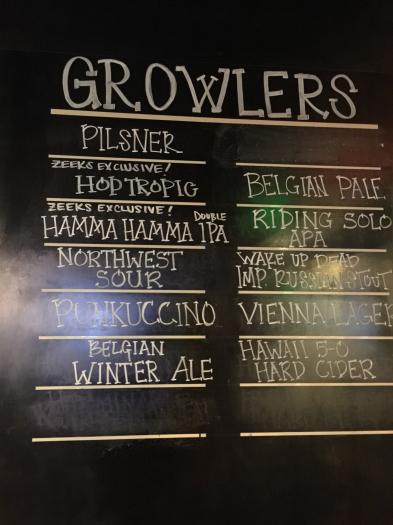 GROWLERS
PILSNER
ZEEKS EXCLUSIVE!
HOPTROPIC
ZEEKS EXCLUSIVE!
HAMMA HAMMA DOUBLE IPA
NORTHWEST
SOUR
PUNKUCCINO
BELGIAN
WINTER ALE
BELGIAN PALE
RIDING SOLO
APA
WAKE UP DEAD
IMP. RUSSIAN STOUT
VIENNA LAGER
HAWAII 5-0
HARD CIDER